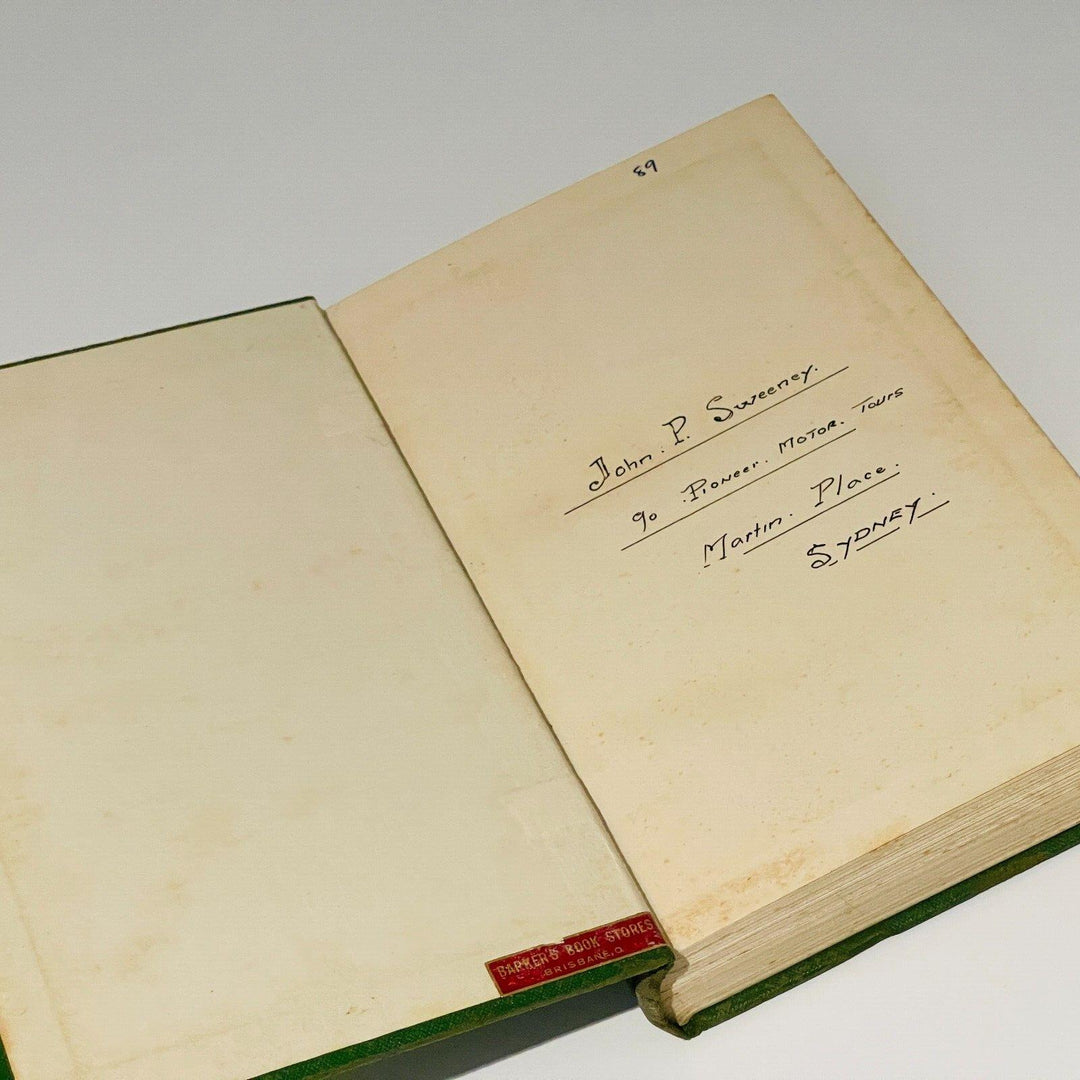 89
John. P. Sweeney.
c/o Pioneer. MOTOR. TOURS
Martin. Place.
SYDNEY.
BARKER'S BOOK STORES
BRISBANE, Q.